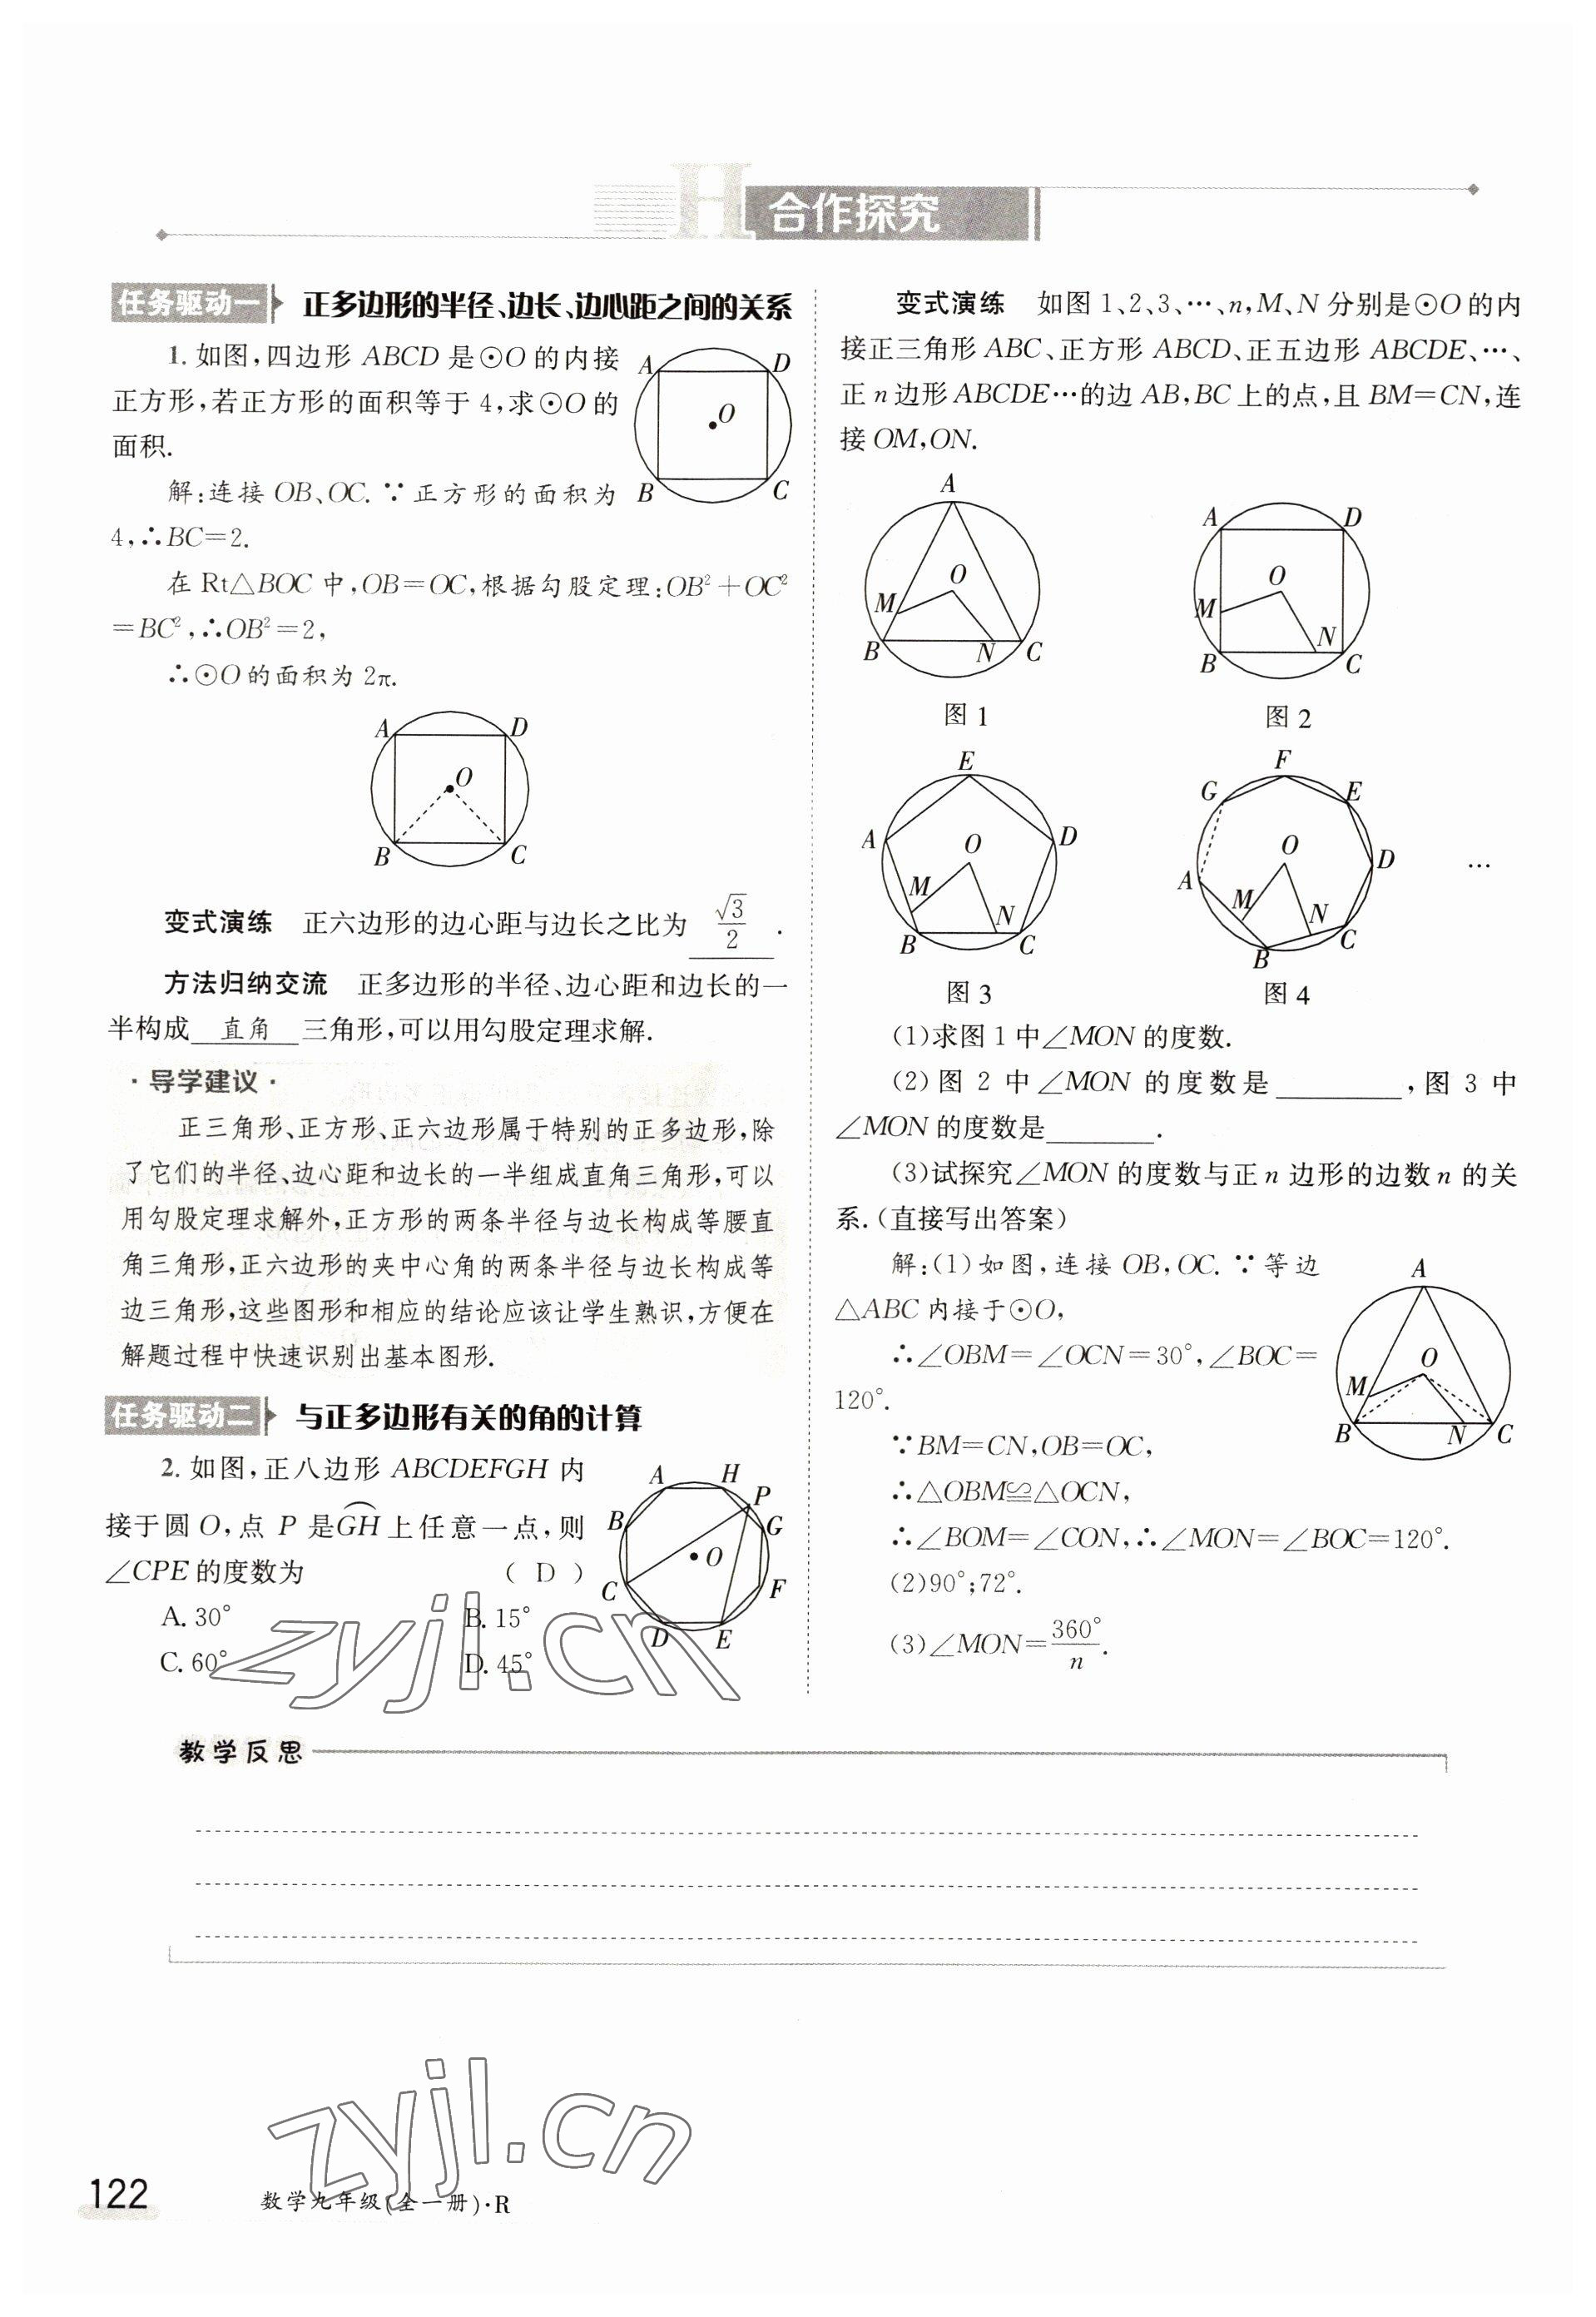 H 合作探究
任务驱动一 正多边形的半径、边长、边心距之间的关系
1. 如图,四边形 ABCD 是⊙O 的内接
正方形,若正方形的面积等于 4,求⊙O 的
面积.
A D
O
B C
解:连接 OB、OC. ∵正方形的面积为
4,∴BC=2.
在 Rt△BOC 中,OB=OC,根据勾股定理:OB²+OC²
=BC²,∴OB²=2,
∴⊙O 的面积为 2π.
A D
O
B C
变式演练 正六边形的边心距与边长之比为 √3/2 .
方法归纳交流 正多边形的半径、边心距和边长的一
半构成 直角 三角形,可以用勾股定理求解.
·导学建议·
正三角形、正方形、正六边形属于特别的正多边形,除
了它们的半径、边心距和边长的一半组成直角三角形,可以
用勾股定理求解外,正方形的两条半径与边长构成等腰直
角三角形,正六边形的夹中心角的两条半径与边长构成等
边三角形,这些图形和相应的结论应该让学生熟识,方便在
解题过程中快速识别出基本图形.
任务驱动二 与正多边形有关的角的计算
2. 如图,正八边形 ABCDEFGH 内
接于圆 O,点 P 是⌒GH上任意一点,则
∠CPE 的度数为 ( D )
A. 30° B. 15°
C. 60° D. 45°
A H
P
B G
O
C F
D E
变式演练 如图 1、2、3、…、n,M、N 分别是⊙O 的内
接正三角形 ABC、正方形 ABCD、正五边形 ABCDE、…、
正 n 边形 ABCDE…的边 AB,BC 上的点,且 BM=CN,连
接 OM,ON.
A
O
M
B N C
图 1
A D
O
M N
B C
图 2
E
A D
O
M N
B C
图 3
F
G E
O D
A M N
B C
图 4
…
(1)求图 1 中∠MON 的度数.
(2)图 2 中∠MON 的度数是________,图 3 中
∠MON 的度数是_______.
(3)试探究∠MON 的度数与正 n 边形的边数 n 的关
系.(直接写出答案)
解:(1)如图,连接 OB,OC. ∵等边
△ABC 内接于⊙O,
∴∠OBM=∠OCN=30°,∠BOC=
120°.
∵BM=CN,OB=OC,
∴△OBM≌△OCN,
∴∠BOM=∠CON,∴∠MON=∠BOC=120°.
(2)90°;72°.
(3)∠MON=360°/n.
A
O
M
B N C
教学反思
zyjl.cn
zyjl.cn
122
数学九年级(全一册)·R